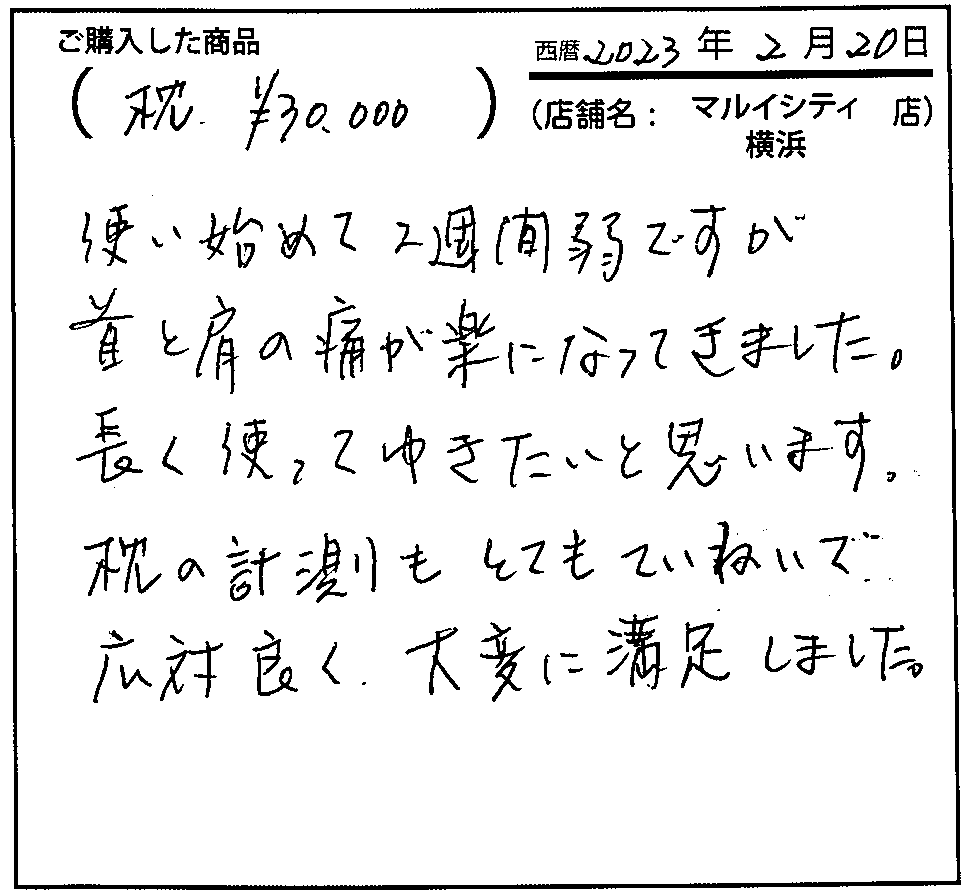 ご購入した商品
西暦 2023 年 2 月 20 日
( 枕. ¥30.000 )
(店舗名: マルイシティ横浜 店)
使い始めて2週間弱ですが
首と肩の痛が楽になってきました。
長く使ってゆきたいと思います。
枕の計測もとてもていねいで
広対良く、大変に満足しました。